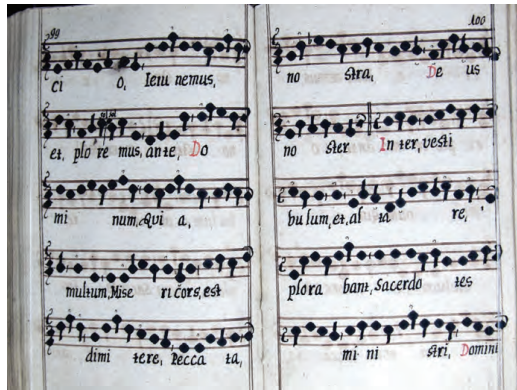 99
ci o, Ieiu nemus,
et, plo re mus, ante, Do
mi num, Qui a,
multum, Mise ri cors, est
dimi tere, Pecca ta,
100
no stra, De us
no ster In ter, vesti
bu lum, et, al ta re,
plora bant, Sacerdo tes
mi ni stri, Domini